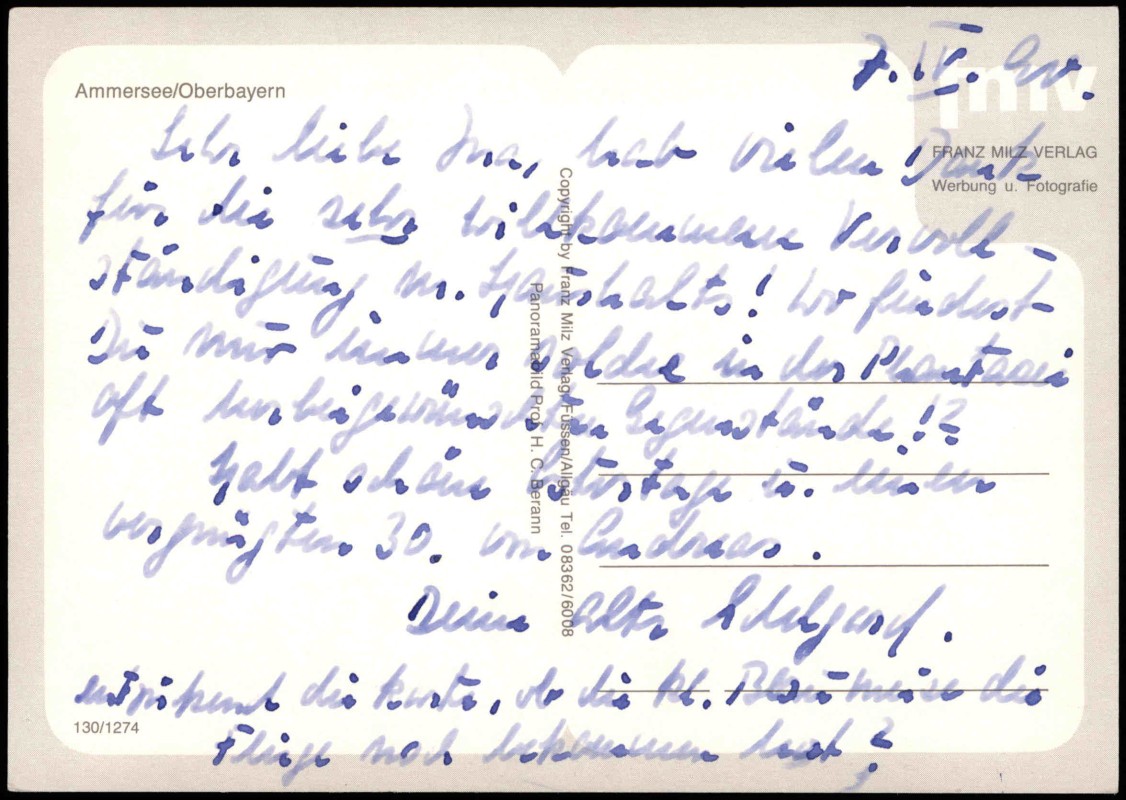 7. IV. 90.
Ammersee/Oberbayern
fmv
FRANZ MILZ VERLAG
Werbung u. Fotografie
Sehr liebe Ina, hab vielen Dank
für die sehr willkommene Vervoll-
ständigung m. Haushalts! Wo findest
Du nur immer solche in der
oft herbeigewünschten Gegenstände!?
Habt schöne u. einen
vergnügten 30. von Andreas.
Deine alte Edelgard.
die Karte, ob die kl. Blaumeise die
Fliege noch bekommen hat?
130/1274
Copyright by Franz Milz Verlag, Füssen/Allgäu Tel. 08362/6008
Panoramabild Prof. H. C. Berann